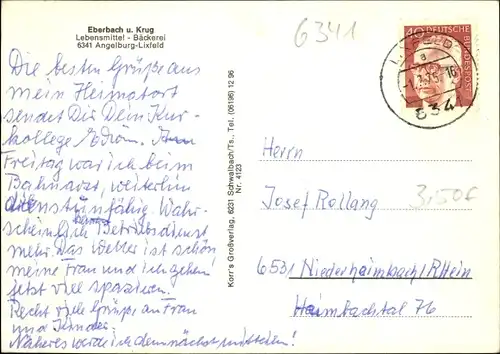 Eberbach u. Krug
Lebensmittel - Bäckerei
6341 Angelburg-Lixfeld
6341
40
DEUTSCHE BUNDESPOST
634
Die besten Grüße aus
mein Heimatort
sendet Dir Dein Kur-
kollege
Freitag war ich beim
Bahnarzt, weiterhin
dienstunfähig Wahr-
scheinlich kein Betriebsdienst
mehr. Das Wetter ist schön
meine Frau und ich gehen
jetzt viel spazieren.
Recht viele Grüße an Frau
und Kinder.
Näheres werde ich dem nächst mitteilen!
Korr's Großverlag, 6231 Schwalbach/Ts., Tel. (06196) 12 96
Nr. 4123
Herrn
Josef Rollang
3,50
6531 Niederheimbach/RHein
Heimbachtal 76